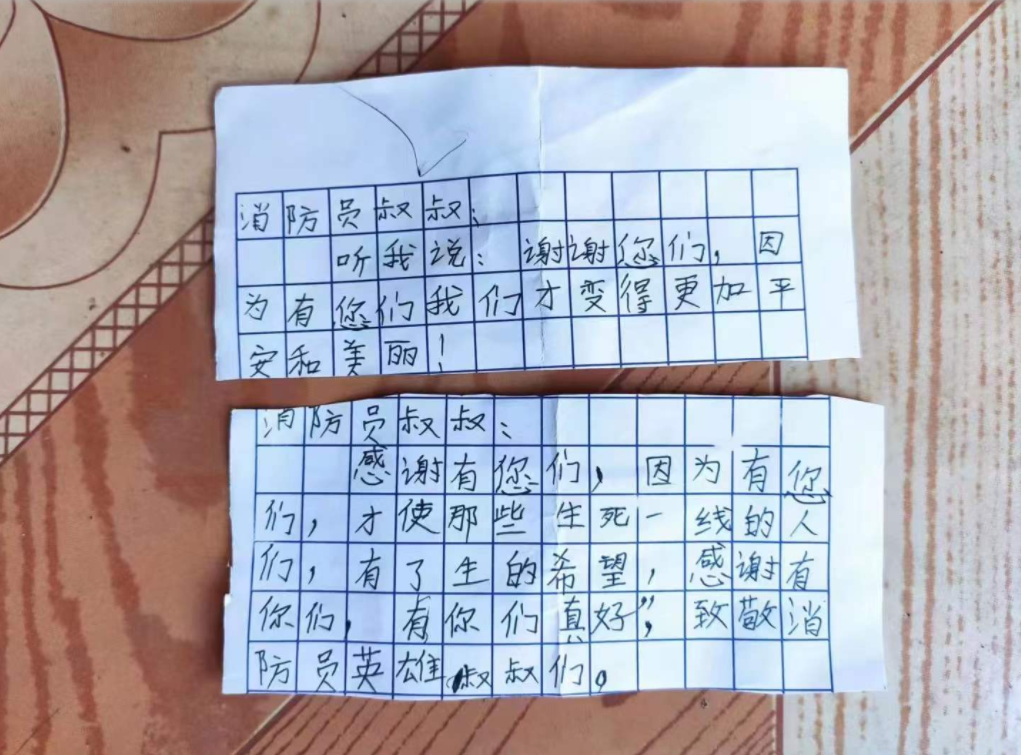 消防员叔叔：
听我说：谢谢您们，因
为有您们我们才变得更加平
安和美丽！
消防员叔叔：
感谢有您们，因为有您
们，才使那些生死一线的人
们，有了生的希望，感谢有
你们，有你们真好”，致敬消
防员英雄叔叔们。